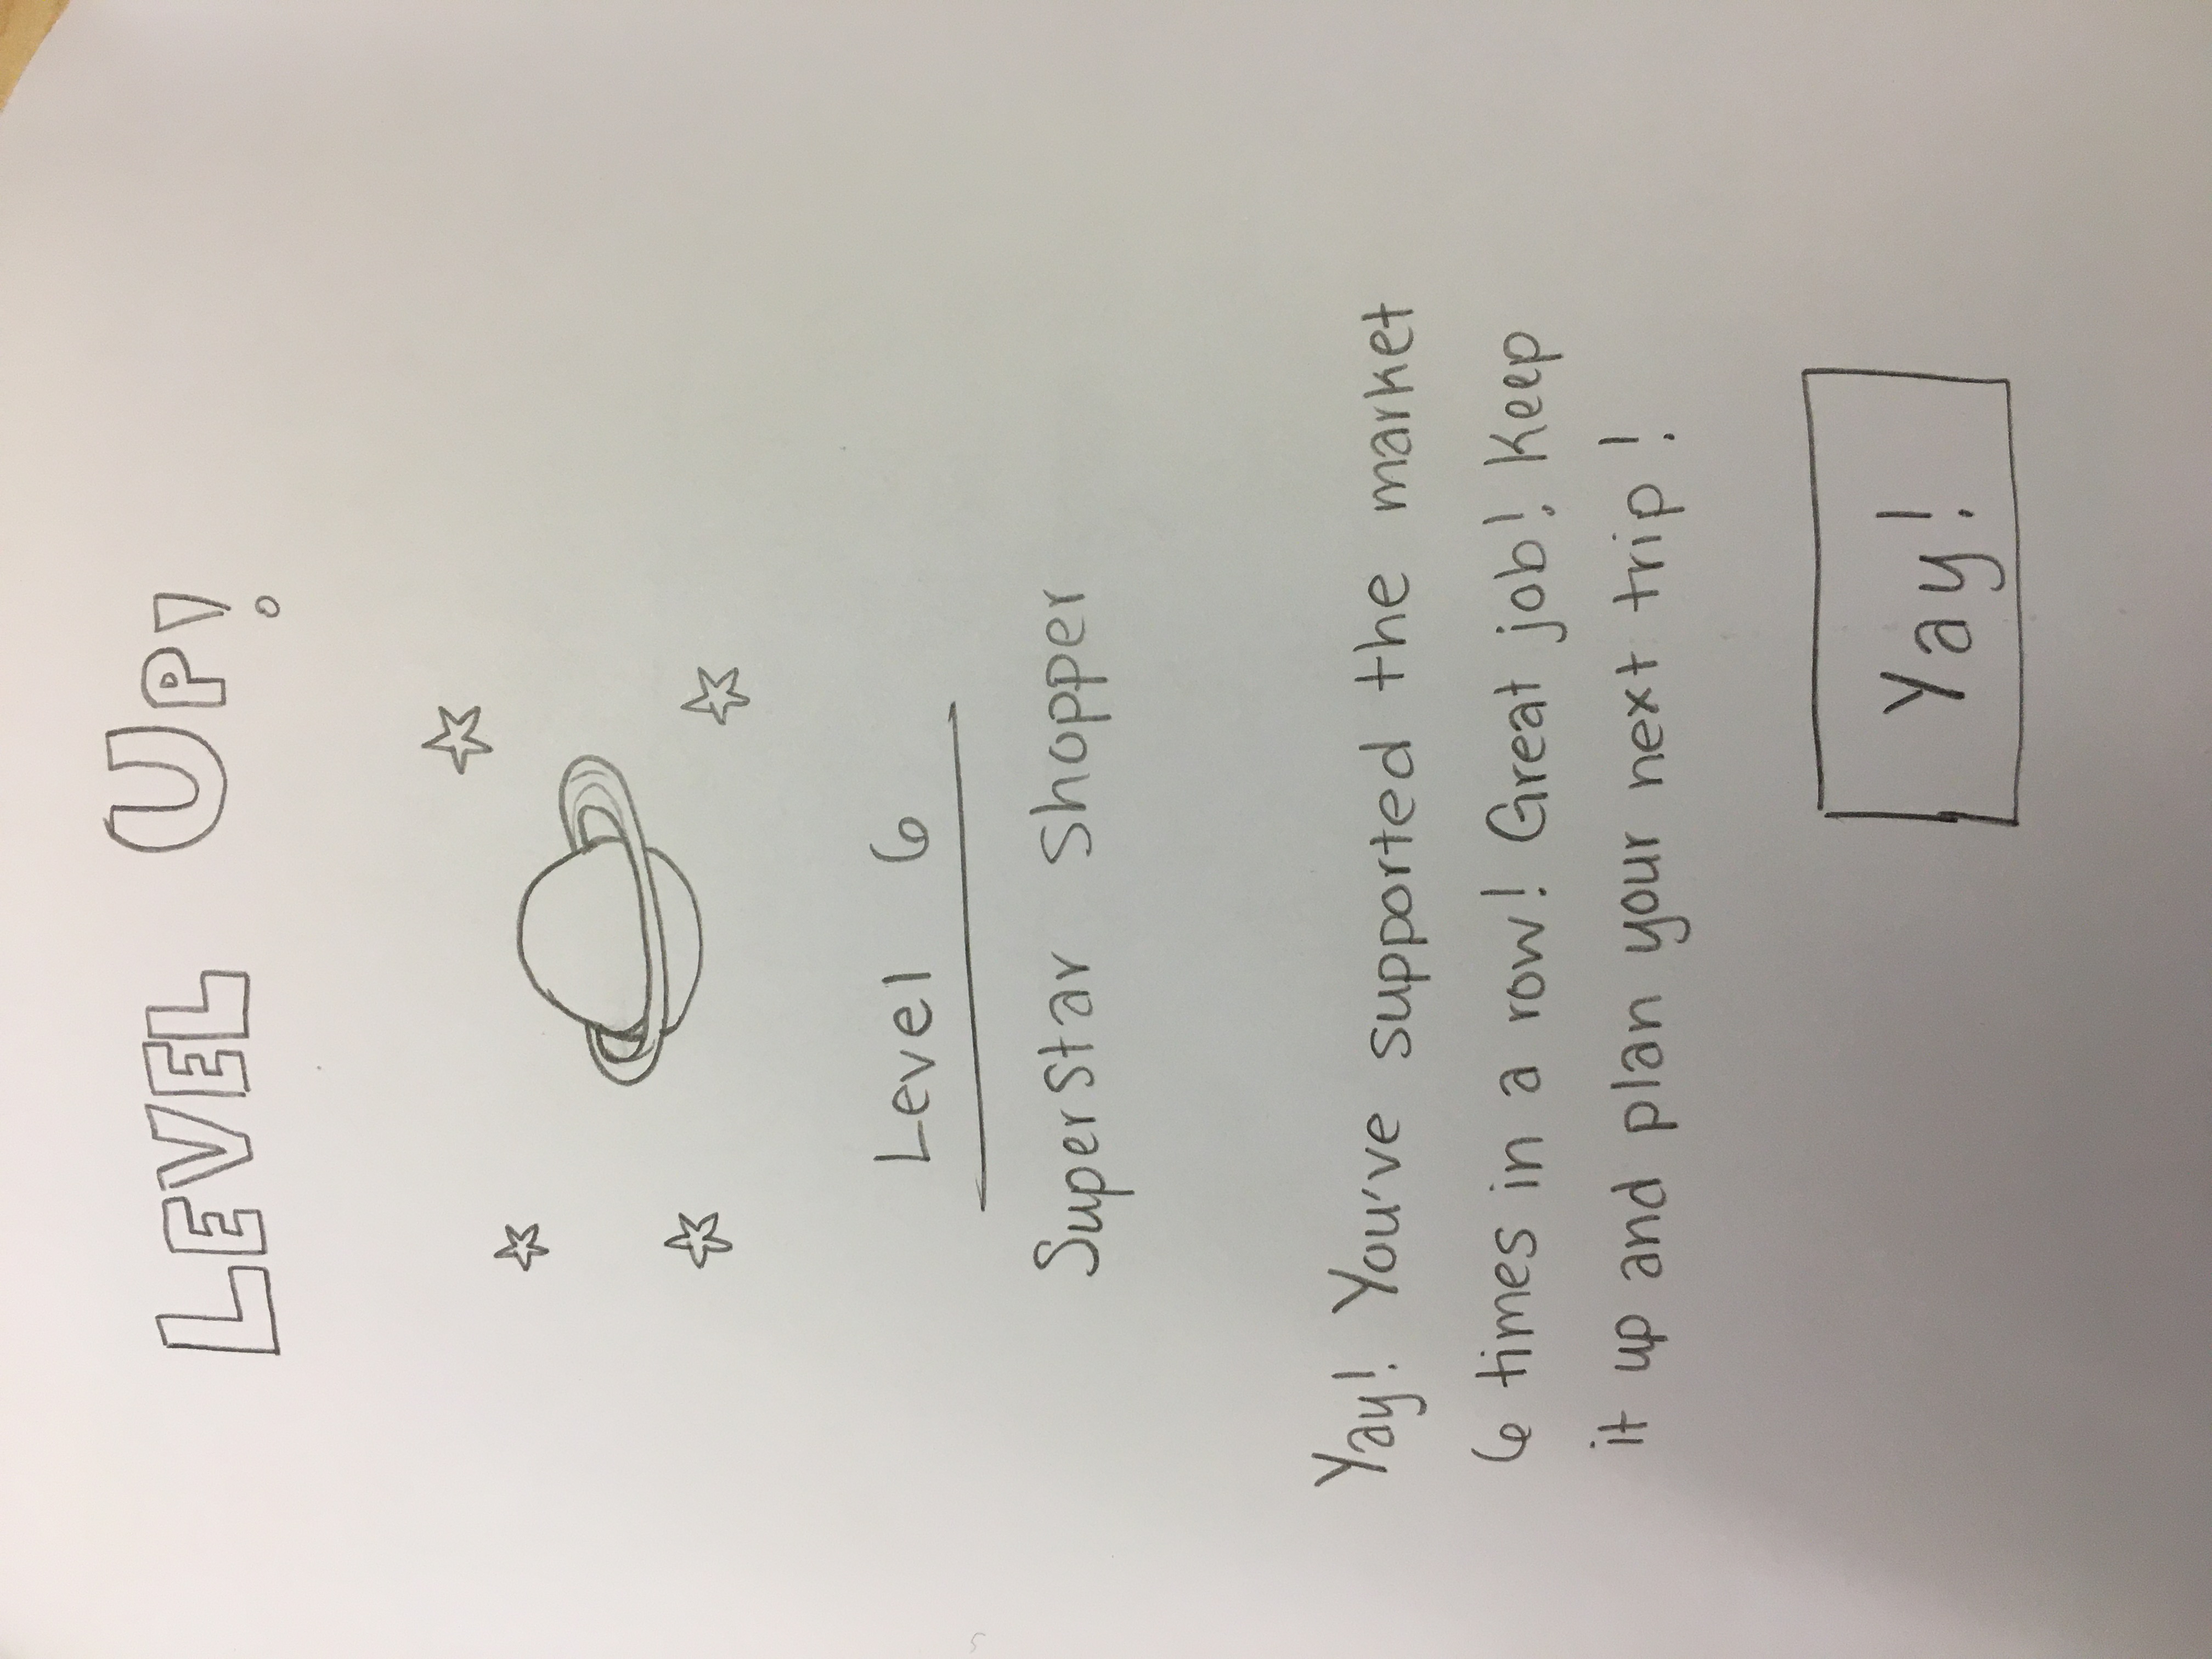 LEVEL UP!
Level 6
Superstar Shopper
Yay! You've supported the market
6 times in a row! Great job! Keep
it up and plan your next trip!
Yay!